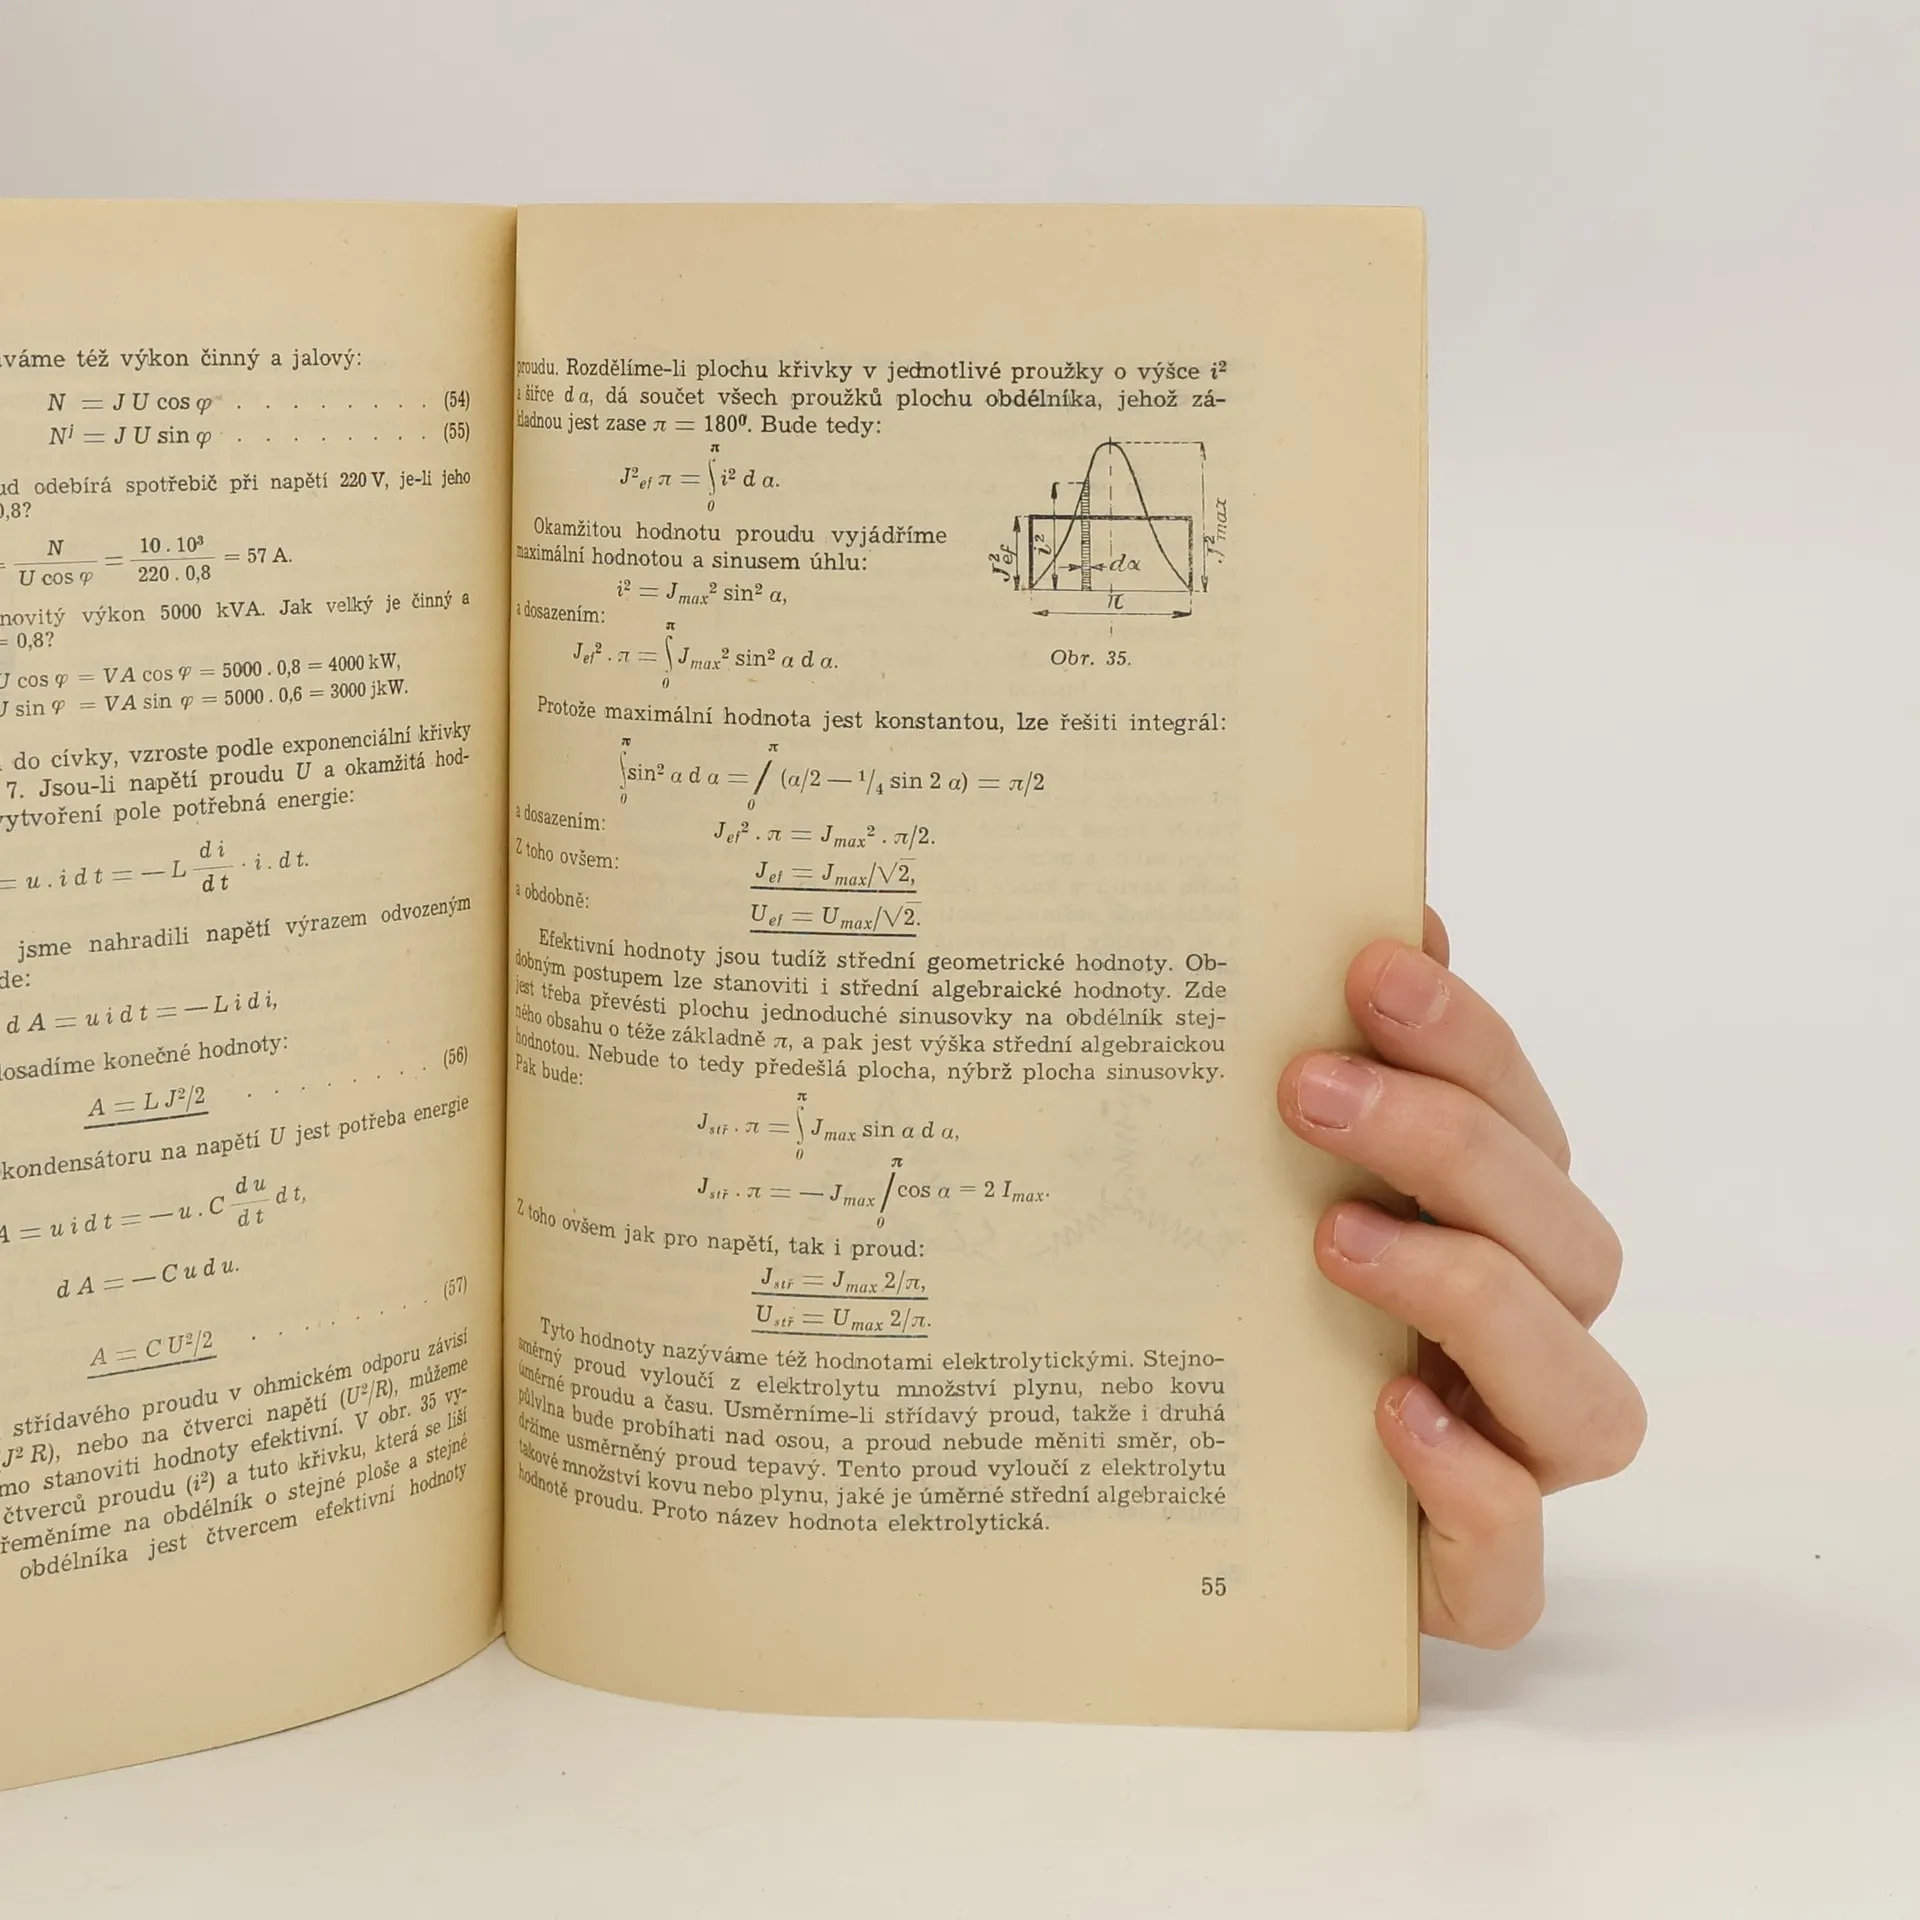 váme též výkon činný a jalový:
N = J U cos φ . . . . . . . . (54)
Nʲ = J U sin φ . . . . . . . . (55)
ud odebírá spotřebič při napětí 220 V, je-li jeho
0,8?
= N / U cos φ = 10 . 10³ / 220 . 0,8 = 57 A.
novitý výkon 5000 kVA. Jak velký je činný a
= 0,8?
U cos φ = VA cos φ = 5000 . 0,8 = 4000 kW,
U sin φ = VA sin φ = 5000 . 0,6 = 3000 jkW.
do cívky, vzroste podle exponenciální křivky
7. Jsou-li napětí proudu U a okamžitá hod-
vytvoření pole potřebná energie:
= u . i d t = — L d i / d t . i . d t.
jsme nahradili napětí výrazem odvozeným
de:
d A = u i d t = — L i d i,
dosadíme konečné hodnoty:
A = L J²/2 . . . . . . . (56)
kondensátoru na napětí U jest potřeba energie
A = u i d t = — u . C d u / d t d t,
d A = — C u d u.
A = C U²/2 . . . . . . . (57)
střídavého proudu v ohmickém odporu závisí
(J² R), nebo na čtverci napětí (U²/R), můžeme
mo stanoviti hodnoty efektivní. V obr. 35 vy-
čtverců proudu (i²) a tuto křivku, která se liší
řeměníme na obdélník o stejné ploše a stejné
obdélníka jest čtvercem efektivní hodnoty
proudu. Rozdělíme-li plochu křivky v jednotlivé proužky o výšce i²
a šířce d α, dá součet všech proužků plochu obdélníka, jehož zá-
kladnou jest zase π = 180⁰. Bude tedy:
J²ef π = ∫₀^π i² d α.
Okamžitou hodnotu proudu vyjádříme
maximální hodnotou a sinusem úhlu:
i² = Jmax² sin² α,
a dosazením:
Jef² . π = ∫₀^π Jmax² sin² α d α.
J²ef i² dα J²max
π
Obr. 35.
Protože maximální hodnota jest konstantou, lze řešiti integrál:
∫₀^π sin² α d α = /₀^π (α/2 — ¹/₄ sin 2 α) = π/2
a dosazením:
Jef² . π = Jmax² . π/2.
Z toho ovšem:
Jef = Jmax/√2,
a obdobně:
Uef = Umax/√2.
Efektivní hodnoty jsou tudíž střední geometrické hodnoty. Ob-
dobným postupem lze stanoviti i střední algebraické hodnoty. Zde
jest třeba převésti plochu jednoduché sinusovky na obdélník stej-
ného obsahu o téže základně π, a pak jest výška střední algebraickou
hodnotou. Nebude to tedy předešlá plocha, nýbrž plocha sinusovky.
Pak bude:
Jstř . π = ∫₀^π Jmax sin α d α,
Jstř . π = — Jmax /₀^π cos α = 2 Imax.
Z toho ovšem jak pro napětí, tak i proud:
Jstř = Jmax 2/π,
Ustř = Umax 2/π.
Tyto hodnoty nazýváme též hodnotami elektrolytickými. Stejno-
směrný proud vyloučí z elektrolytu množství plynu, nebo kovu
úměrné proudu a času. Usměrníme-li střídavý proud, takže i druhá
půlvlna bude probíhati nad osou, a proud nebude měniti směr, ob-
držíme usměrněný proud tepavý. Tento proud vyloučí z elektrolytu
takové množství kovu nebo plynu, jaké je úměrné střední algebraické
hodnotě proudu. Proto název hodnota elektrolytická.
55